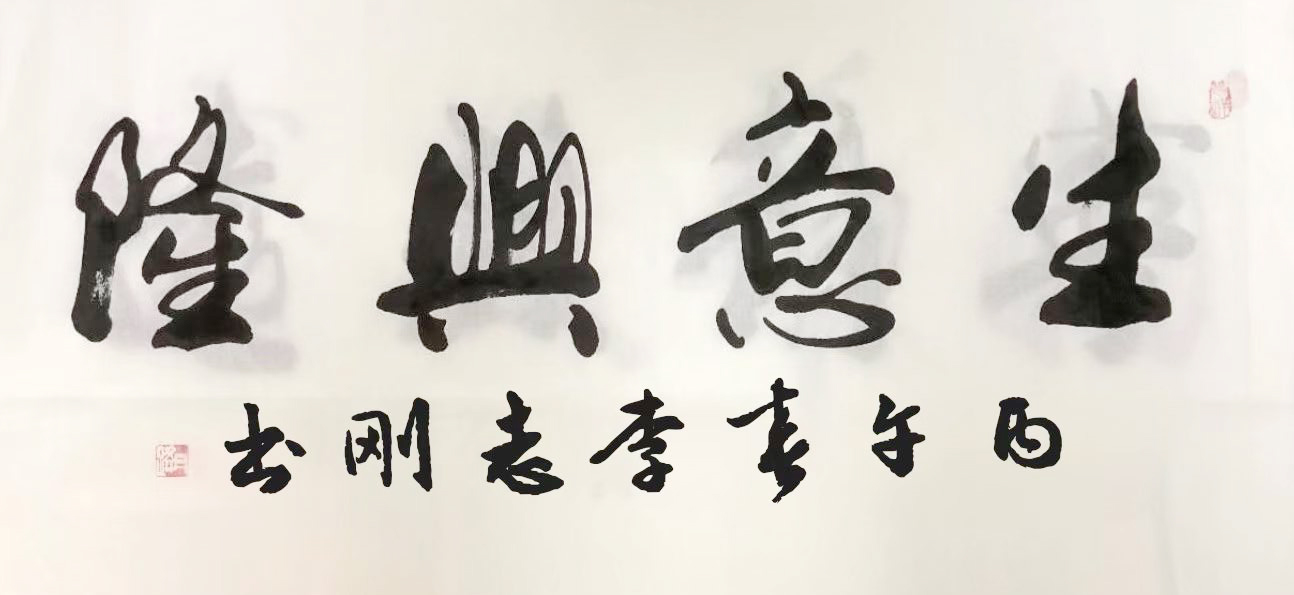 生意興隆
丙午春李志刚书